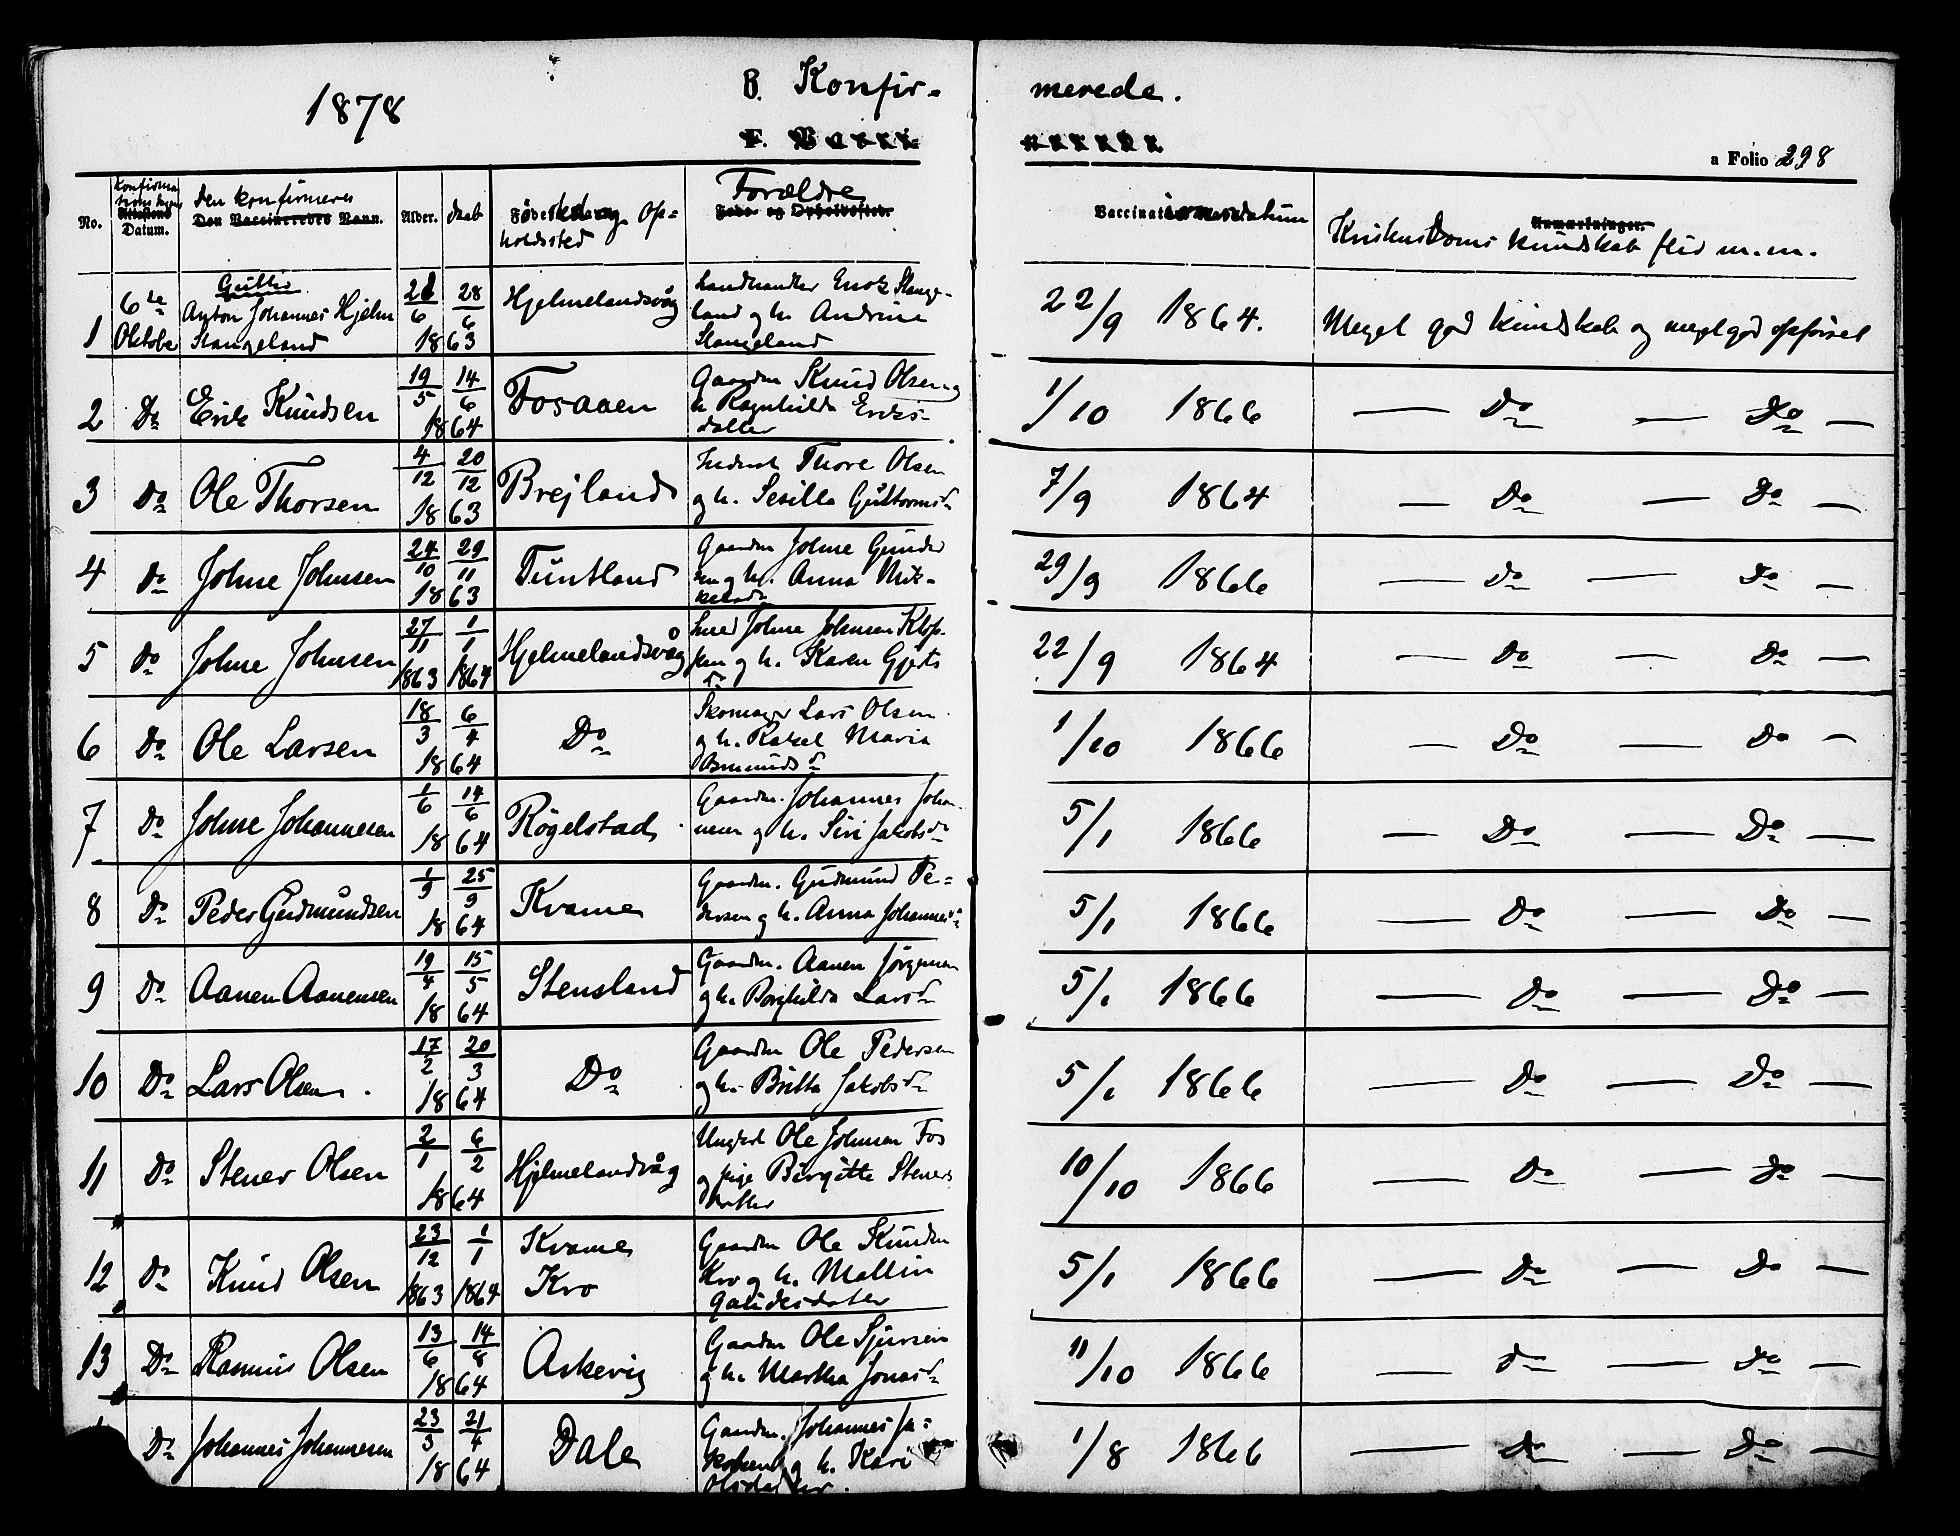 1878
B. Konfir-
merede.
a Folio 298
No.
Datum.
Den konfirmeres
Alder.
daab
Opholdssted
Forældre
Kristendoms kundskab flid m.m.
Gutter
1 6te Oktober Anton Johannes Hjelm Stangeland 6 28/6 1863 Hjelmelandsvåg Landhandler Enok Stangeland og h. Andrine Stangeland 22/9 1864. Meget god kundskab og meget god opførsel
2 Do Erik Knudsen 19/5 14/6 1864 Fosaaen Gaardm Knud Olsen og h. Ragnhilda Eriksdatter 1/10 1866 — Do — Do —
3 Do Ole Thorsen 4/12 20/12 1863 Brejland Thore Olsen og h. Sesilla Guttormsd 7/9 1864 — Do — Do —
4 Do Johne Johnsen 24/10 29/11 1863 Tuntland Gaardm Johne Gundersen og h. Anna Mikkelsd 29/9 1866 — Do — Do —
5 Do Johne Johnsen 27/11 1863 1/1 1864 Hjelmelandsvåg Smed Johne Johnsen og h. Karen Gjertsd 22/9 1864 — Do — Do —
6 Do Ole Larsen 18/3 6/4 1864 Do Skomager Lars Olsen og h. Rakel Maria Osmundsd 1/10 1866 — Do — Do —
7 Do Johne Johannesen 1/6 14/6 1864 Røgelstad Gaardm. Johannes Johannesen og h. Siri Jakobsd 5/1 1866 — Do — Do —
8 Do Peder Gudmundsen 1/9 25/9 1864 Kvame Gaardm. Gudmund Pedersen og h. Anna Johannesd 5/1 1866 — Do — Do —
9 Do Aanen Aanensen 19/4 15/5 1864 Stensland Gaardm. Aanen Jørgensen og h. Borghilda Larsd 5/1 1866 — Do — Do —
10 Do Lars Olsen. 17/2 20/3 1864 Do Gaardm Ole Pedersen og h. Britta Jakobsd 5/1 1866 — Do — Do —
11 Do Stener Olsen 2/1 6/2 1864 Hjelmelandsvåg Ungkarl Ole Johnsen Fos og pige Birgitte Stenersdatter 10/10 1866 — Do — Do —
12 Do Knud Olsen 23/12 1863 1/1 1864 Kvame Kro Gaardm Ole Knudsen Kro og h. Mallin 5/1 1866 — Do — Do —
13 Do Rasmus Olsen 13/6 14/8 1864 Askevig Gaardm Ole Sjursen og h. Martha Jonasd 11/10 1866 — Do — Do —
Do Johannes Johannesen 23/3 21/4 1864 Dale Gaardm. Johannes Jakobsen og h. Kari Olsdatter. 1/8 1866 — Do — Do —